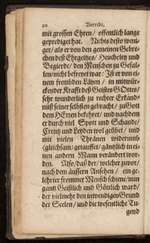 20 Vorrede.
mit grossen Ehren / offentlich lange
geprediget hat. Nichts desto weni-
ger / als er von den gemeinen Gebre-
chen deß Ehrgeitzes / Heucheley und
Begierde / den Menschen zu gefal-
len / nicht befreyet war: Ist er von ei-
nem frommen Läyen / in mitwür-
ckender Krafft deß Geistes Gottes /
sehr wunderlich zu rechter Erkänd-
nüß seiner selbsten gebracht / zu
dem HErrn bekehret / und nachdem
er durch viel Spott und Schande /
Creutz und Leyden wol geübet / und
mit vielen Thränen
(gleichsam) getauffet / gäntzlich in ei-
nen andern Mann verändert wor-
den. Also / daß der / welcher zuvor /
nach dem äussern Ansehen / ein ge-
lehrter frommer Mensch schiene / nun
gantz Geistlich und Göttlich ward /
der vielmehr den innwendigen Grund
der Seelen / und die wesentliche Tu-
gend